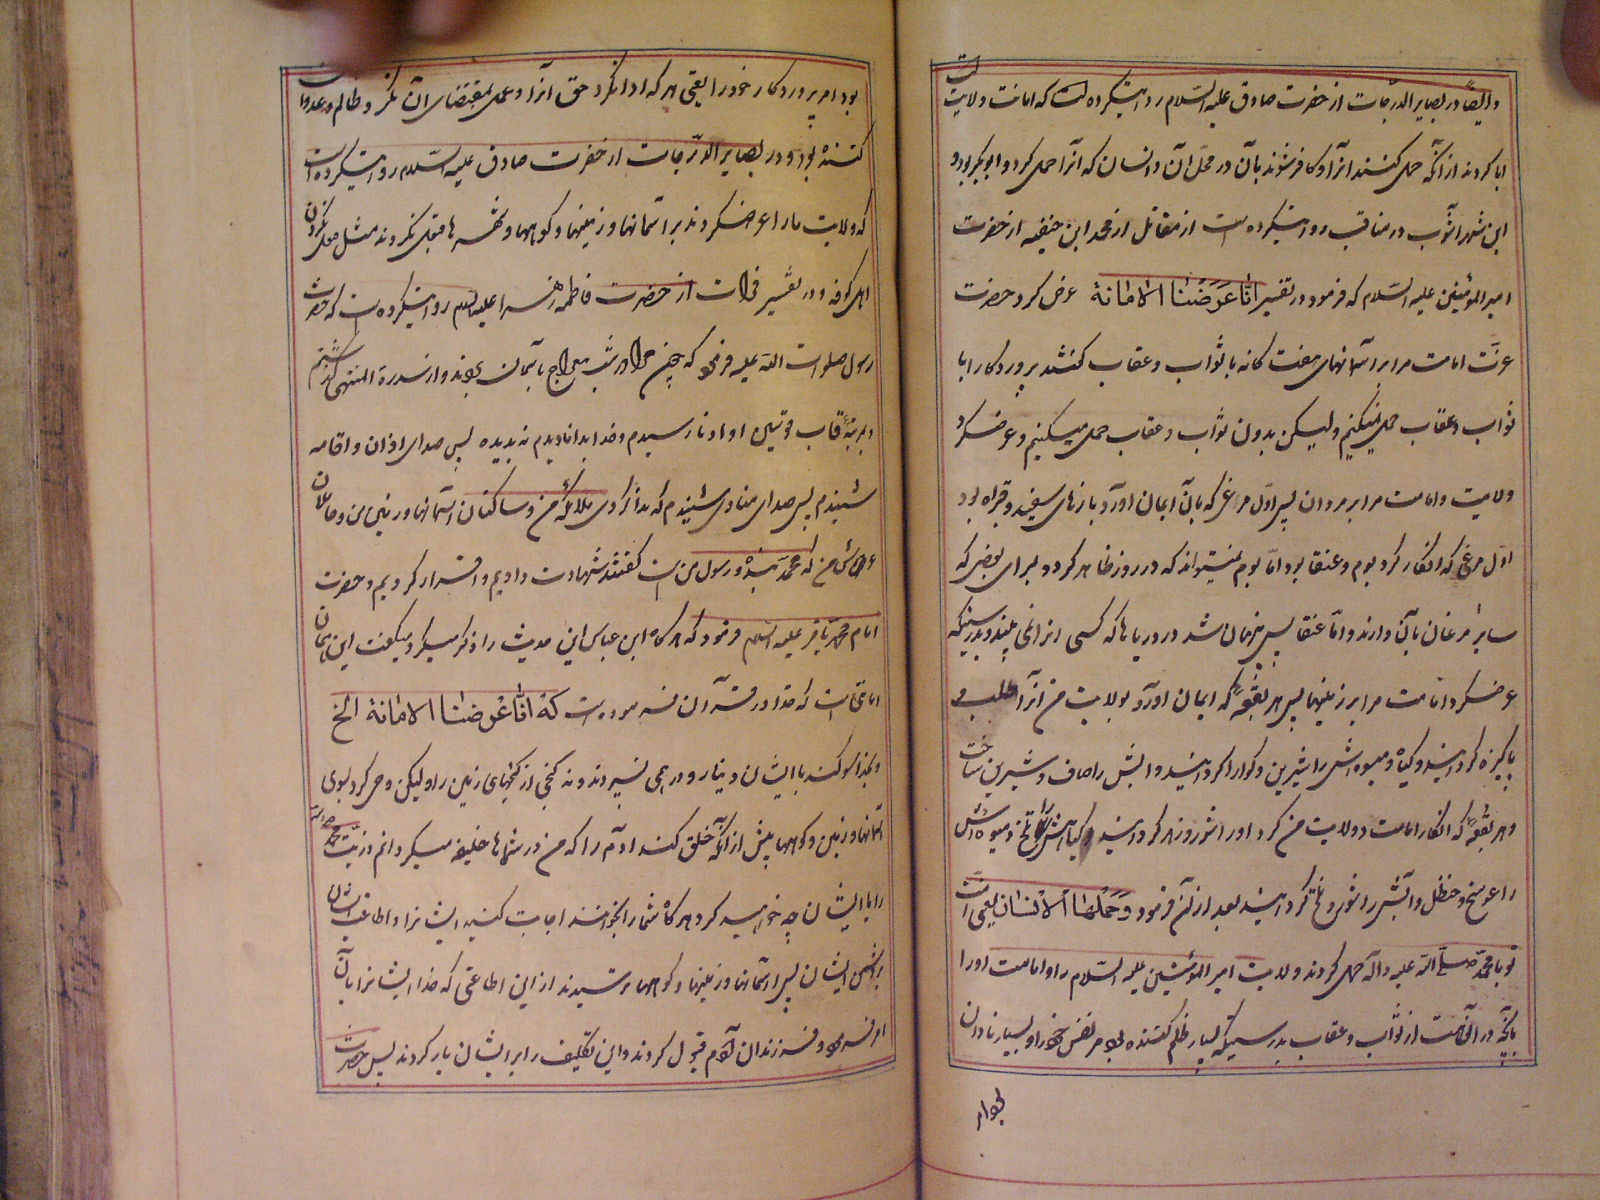 و ایضا در بصایر الدرجات از حضرت صادق علیه السلام روایت کرده است که امانت ولایت است
ابا کردند از آنکه حمل کنند آنرا و کافر شوند بآن در محل آن و انسان که آنرا حمل کرد و ابوبکر بود و
ابن شهر آشوب در مناقب روایت کرده است از مقاتل از محمد ابن حنفیه از حضرت
امیر المؤمنین علیه السلام که فرمود در تفسیر انا عرضنا الامانة عرض کرد حضرت
عزت امانت مرا بر آسمانهای هفت کانه با ثواب و عقاب گفتند پروردکارا با
ثواب و عقاب حمل نمیکنیم ولیکن بدون ثواب و عقاب حمل میکنیم و عرض کرد
ولایت و امانت مرا بر مرغان پس اول مرغی که بآن ایمان آورد بازهای سفید و قبره بود
اول مرغی که انکار کرد بوم و عنقا بود اما بوم نمیتواند که در روز ظاهر کردد برای بغضی که
سایر مرغان بآن دارند و اما عنقا پس پنهان شد در دریاها که کسی او را نمی بیند و بدرستیکه
عرض کرد امانت مرا بر زمینها پس هر بقعه که ایمان آورد بولایت من آنرا طیب و
پاکیزه کردانید و کیاه و میوه اش را شیرین و کوارا کردانید و آبش را صاف و شیرین ساخت
و هر بقعه که انکار امامت و ولایت من کرد او را شوره زار کردانید و کیاهش را تلخ و میوه اش
را عوسج و حنظل و آبش را شور و تلخ کردانید بعد از آن فرمود و حملها الانسان یعنی امت
تو یا محمد صلی الله علیه و آله حمل کردند ولایت امیر المؤمنین علیه السلام را و امامت او را
بآنچه در آنست از ثواب و عقاب بدرستیکه بسیار ظلم کننده بود مر نفس خود را و بسیار نادان
بود امر پروردکار خود را یعنی هر که ادا نکرد حق آنرا و عمل بمقتضای آن نکرد ظالم و عدوان
کننده بود و در بصایر الدرجات از حضرت صادق علیه السلام روایت کرده است
که ولایت ما را عرض کردند بر آسمانها و زمینها و کوهها و شهرها قبول نکردند مثل قبول کردن
اهل کوفه و در تفسیر فرات از حضرت فاطمه زهرا علیها السلام روایت کرده است که حضرت
رسول صلوات الله علیه فرمود که چون مرا در شب معراج بآسمان بردند و از سدرة المنتهی گذشتم
و بمرتبه قاب قوسین او ادنا رسیدم و خدا را بدل دیدم نه بدیده پس صدای اذان و اقامه
شنیدم پس صدای منادی شنیدم که ندا کرد ای ملائکه من و ساکنان آسمانها و زمین من و حاملان
عرش من که محمد بنده و رسول من است گفتند شهادت دادیم و اقرار کردیم و حضرت
امام محمد باقر علیه السلام فرمود که هرکاه ابن عباس این حدیث را ذکر میکرد میکفت این همان
امانتی است که خدا در قرآن فرموده است که انا عرضنا الامانة الخ
و بخدا سوکند با ایشان دینار و درهمی نسپردند و نه کنجی از کنجهای زمین را ولیکن وحی کرد بسوی
آسمانها و زمین و کوهها پیش از آنکه خلق کند آدم را که من در شماها خلیفه میکردانم ذریت محمد صلی الله
را با ایشان چه خواهید کرد هرکاه شما را بخوانند اجابت کنید ایشانرا و اطاعت ایشان
بر دشمن ایشان پس آسمانها و زمینها و کوهها ترسیدند از این اطاعتی که خدا ایشانرا بآن
امر فرمود و فرزندان آدم قبول کردند و این تکلیف را بر ایشان بار کردند پس حضرت